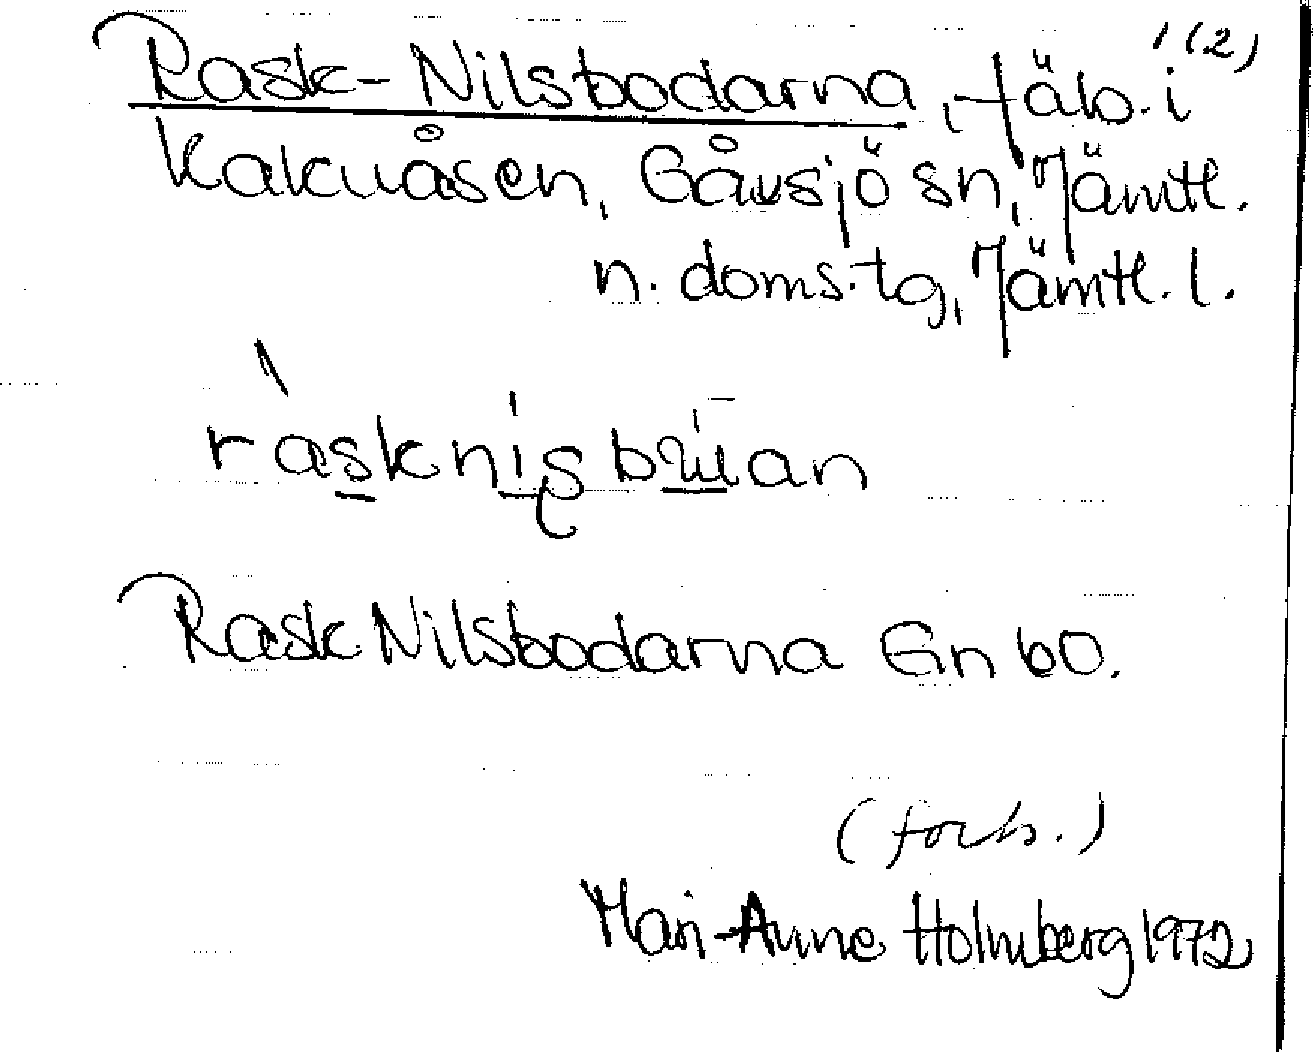 1(2)
Rask-Nilsbodarna, fäb. i
Kakuåsen, Gåxsjö sn, Jämtl.
n. doms. tg, Jämtl. l.
Rask Nilsbodarna Gn 60.
(forts.)
Mari-Anne Holmberg 1972